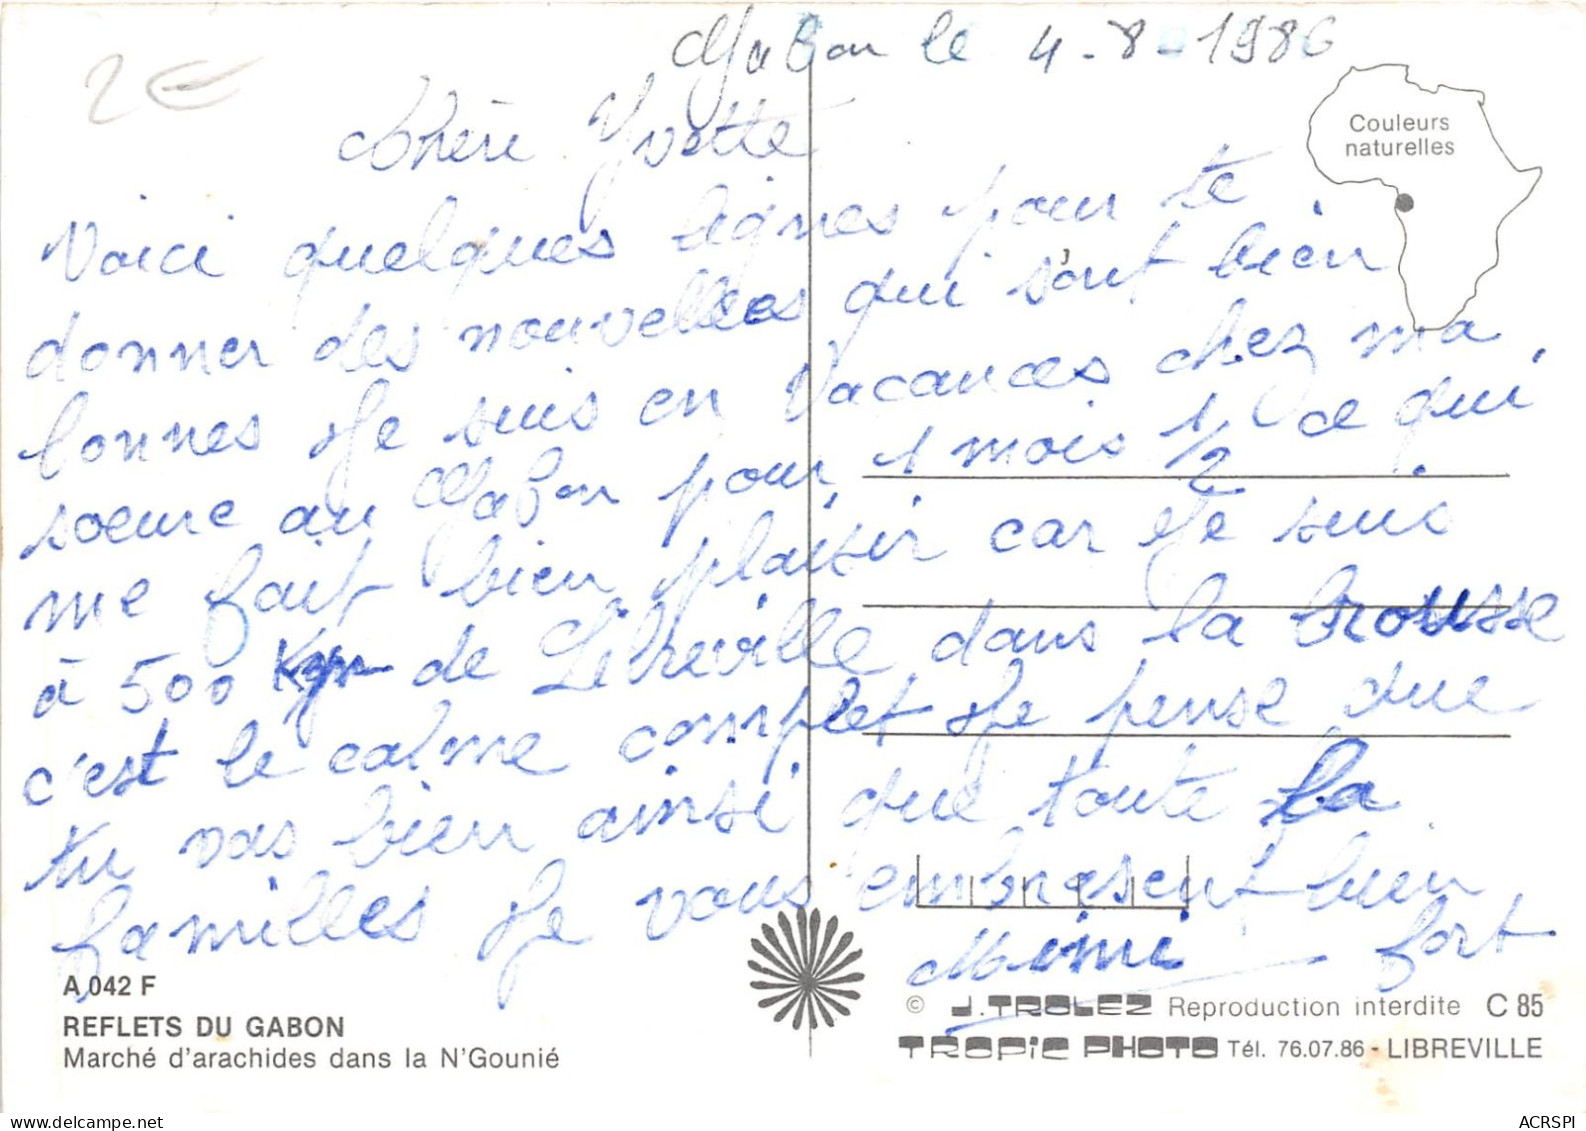 2€
Gabon le 4-8-1986
Chère Yvette
Voici quelques lignes pour te
donner des nouvelles qui sont bien
bonnes Je suis en vacances chez ma
soeure au Gabon pour 1 mois 1/2 ce qui
me fait bien plaisir car Je suis
à 500 Kgm de Libreville dans la brousse
c'est le calme complet Je pense que
tu vas bien ainsi que toute la
familles Je vous embresent bien
Mimi fort
Couleurs
naturelles
A 042 F
REFLETS DU GABON
Marché d'arachides dans la N'Gounié
© J. TROLEZ Reproduction interdite C 85
TROPIC PHOTO Tél. 76.07.86 - LIBREVILLE
ACRSPI